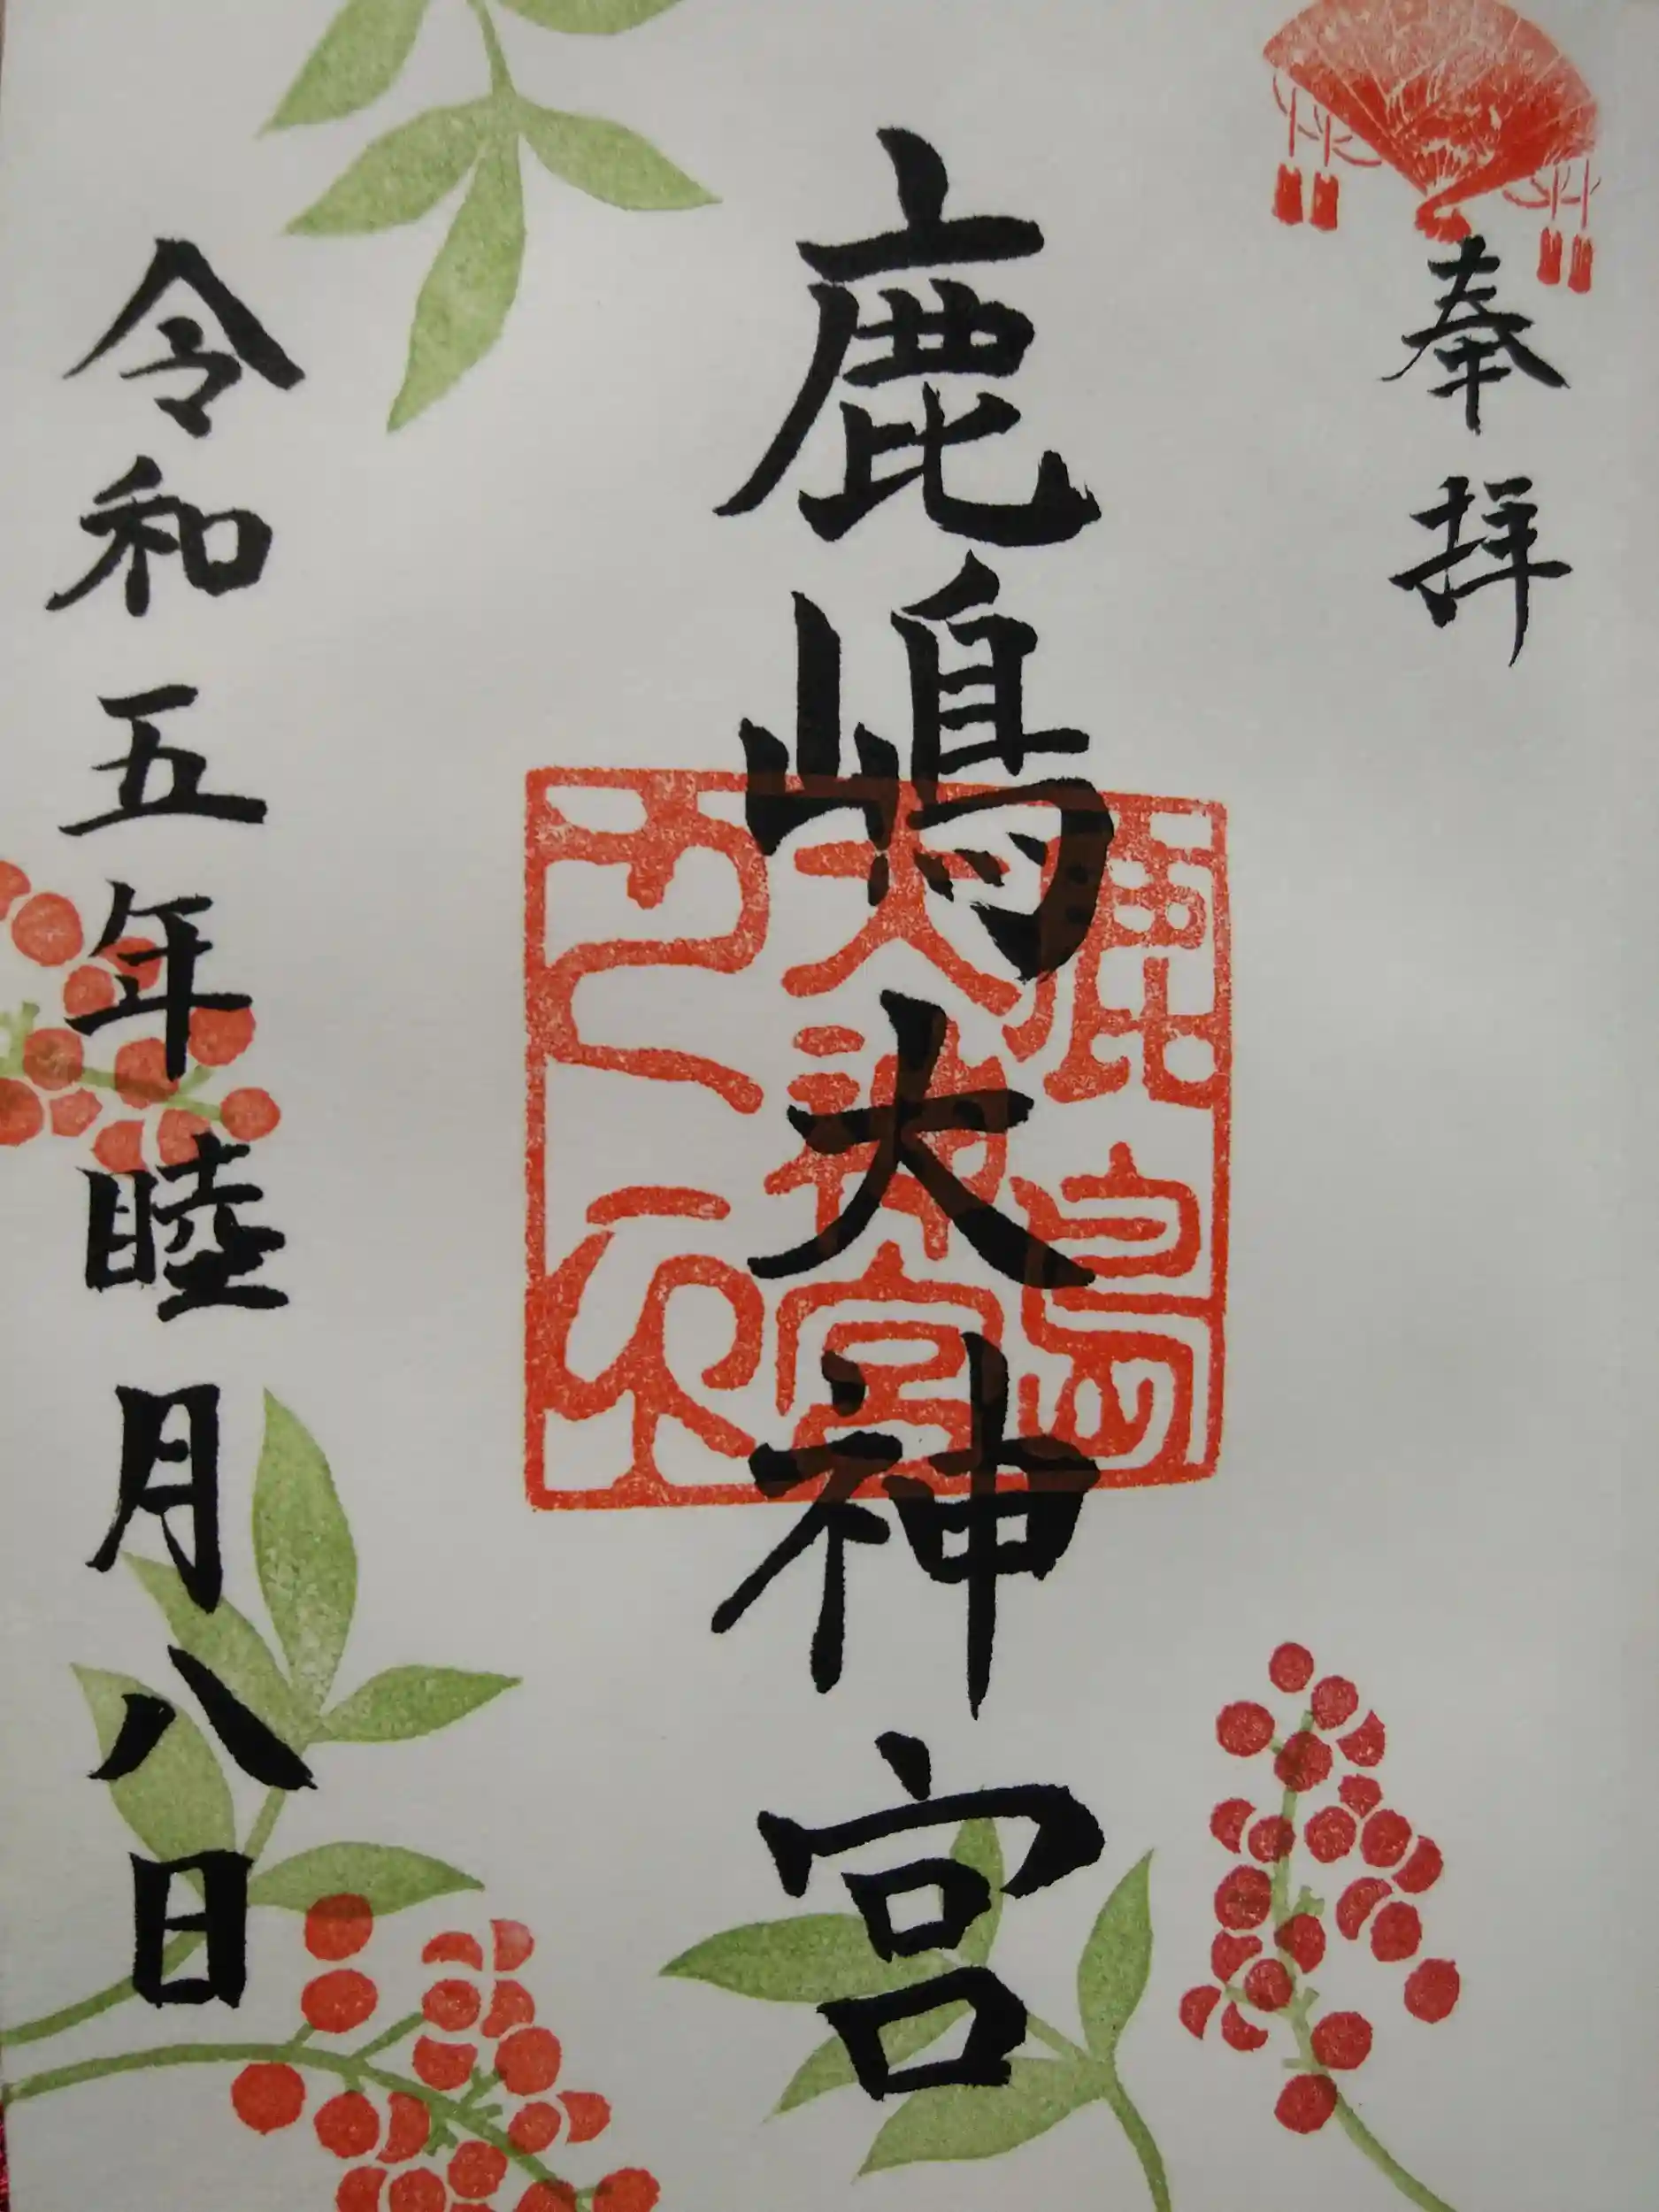 奉拝
鹿嶋大神宮
鹿島
大神宮
之印
令和五年睦月八日